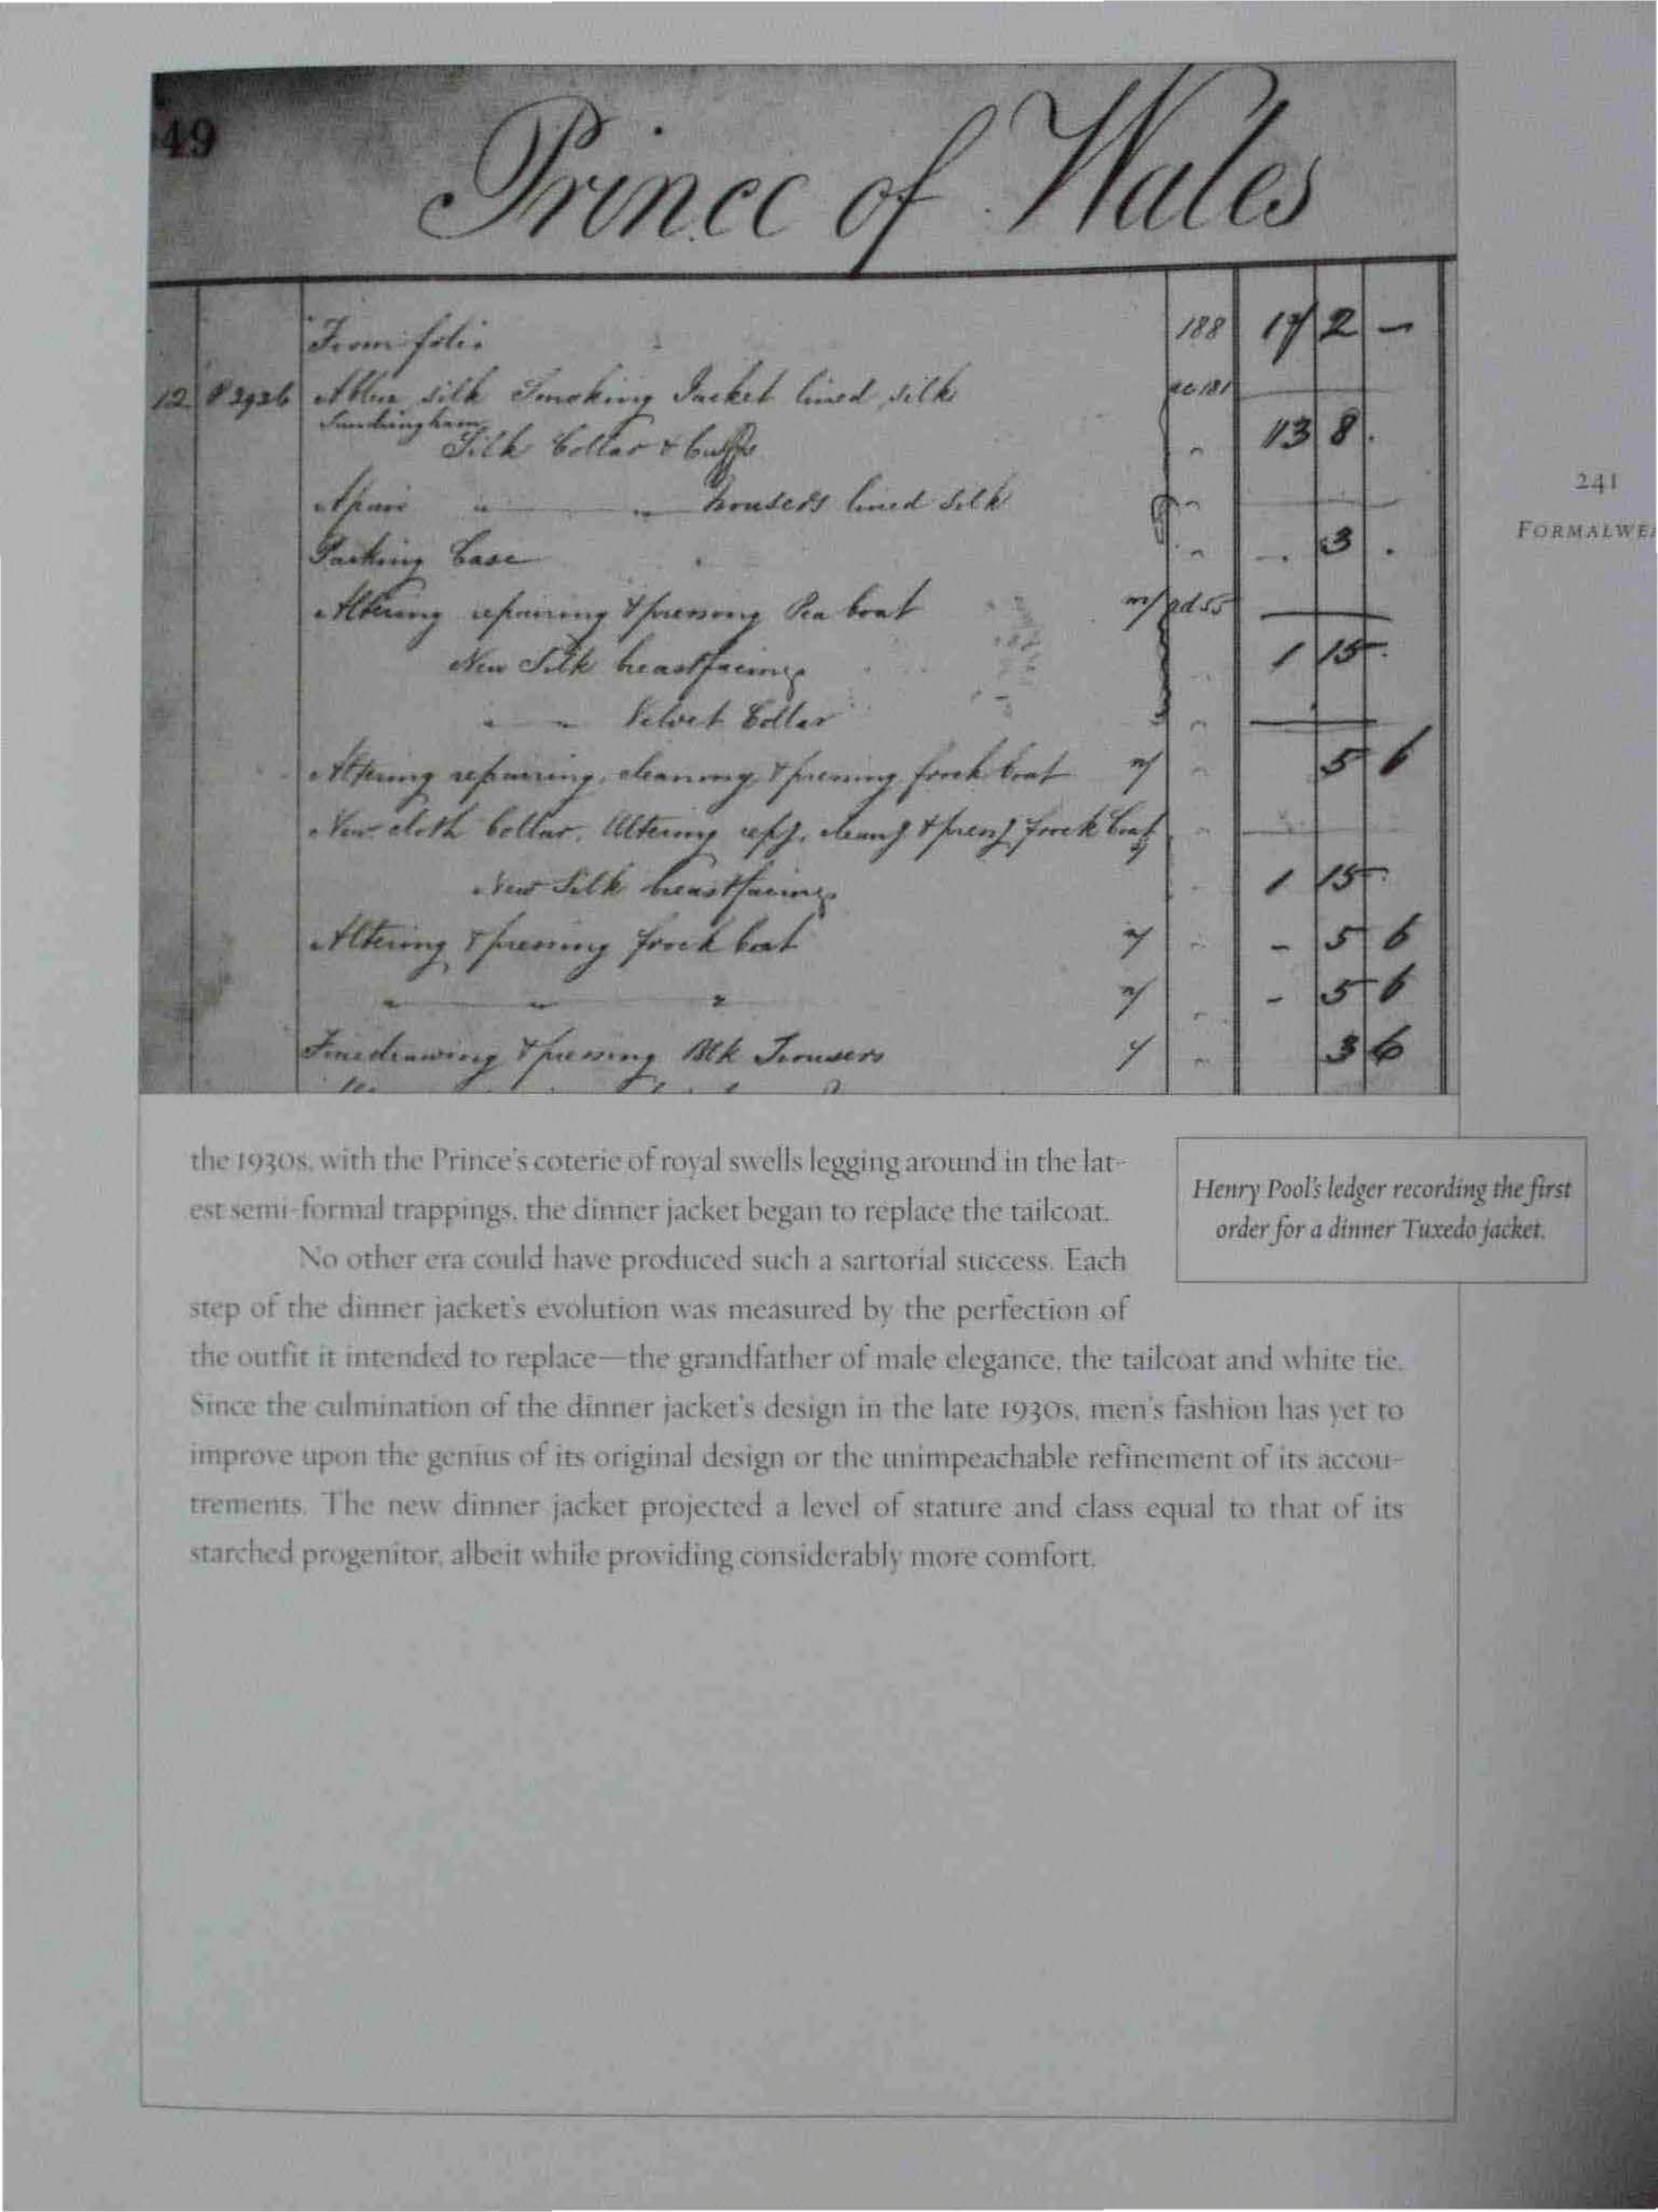 49
Prince of Wales
From folio 188 17 2 -
12 P 2926 A blue silk Smoking Jacket lined silk
Sandringham
Silk Collar & Cuffs 13 8 .
A pair " " trousers lined silk
Packing Case - . 3 .
Altering repairing & pressing Pea Coat
New Silk breastfacings 1 15 .
" " Velvet Collar
Altering repairing, cleaning & pressing frock Coat 5 6
New cloth Collar. Altering repg. cleang & presg frock Coat
New Silk breastfacings 1 15
Altering & pressing frock Coat - 5 6
" " " - 5 6
Finedrawing & pressing Blk Trousers 3 6
241
FORMALWEA
the 1930s, with the Prince's coterie of royal swells legging around in the lat-
est semi-formal trappings, the dinner jacket began to replace the tailcoat.
No other era could have produced such a sartorial success. Each
step of the dinner jacket's evolution was measured by the perfection of
the outfit it intended to replace—the grandfather of male elegance, the tailcoat and white tie.
Since the culmination of the dinner jacket's design in the late 1930s, men's fashion has yet to
improve upon the genius of its original design or the unimpeachable refinement of its accou-
trements. The new dinner jacket projected a level of stature and class equal to that of its
starched progenitor, albeit while providing considerably more comfort.
Henry Pool's ledger recording the first
order for a dinner Tuxedo jacket.